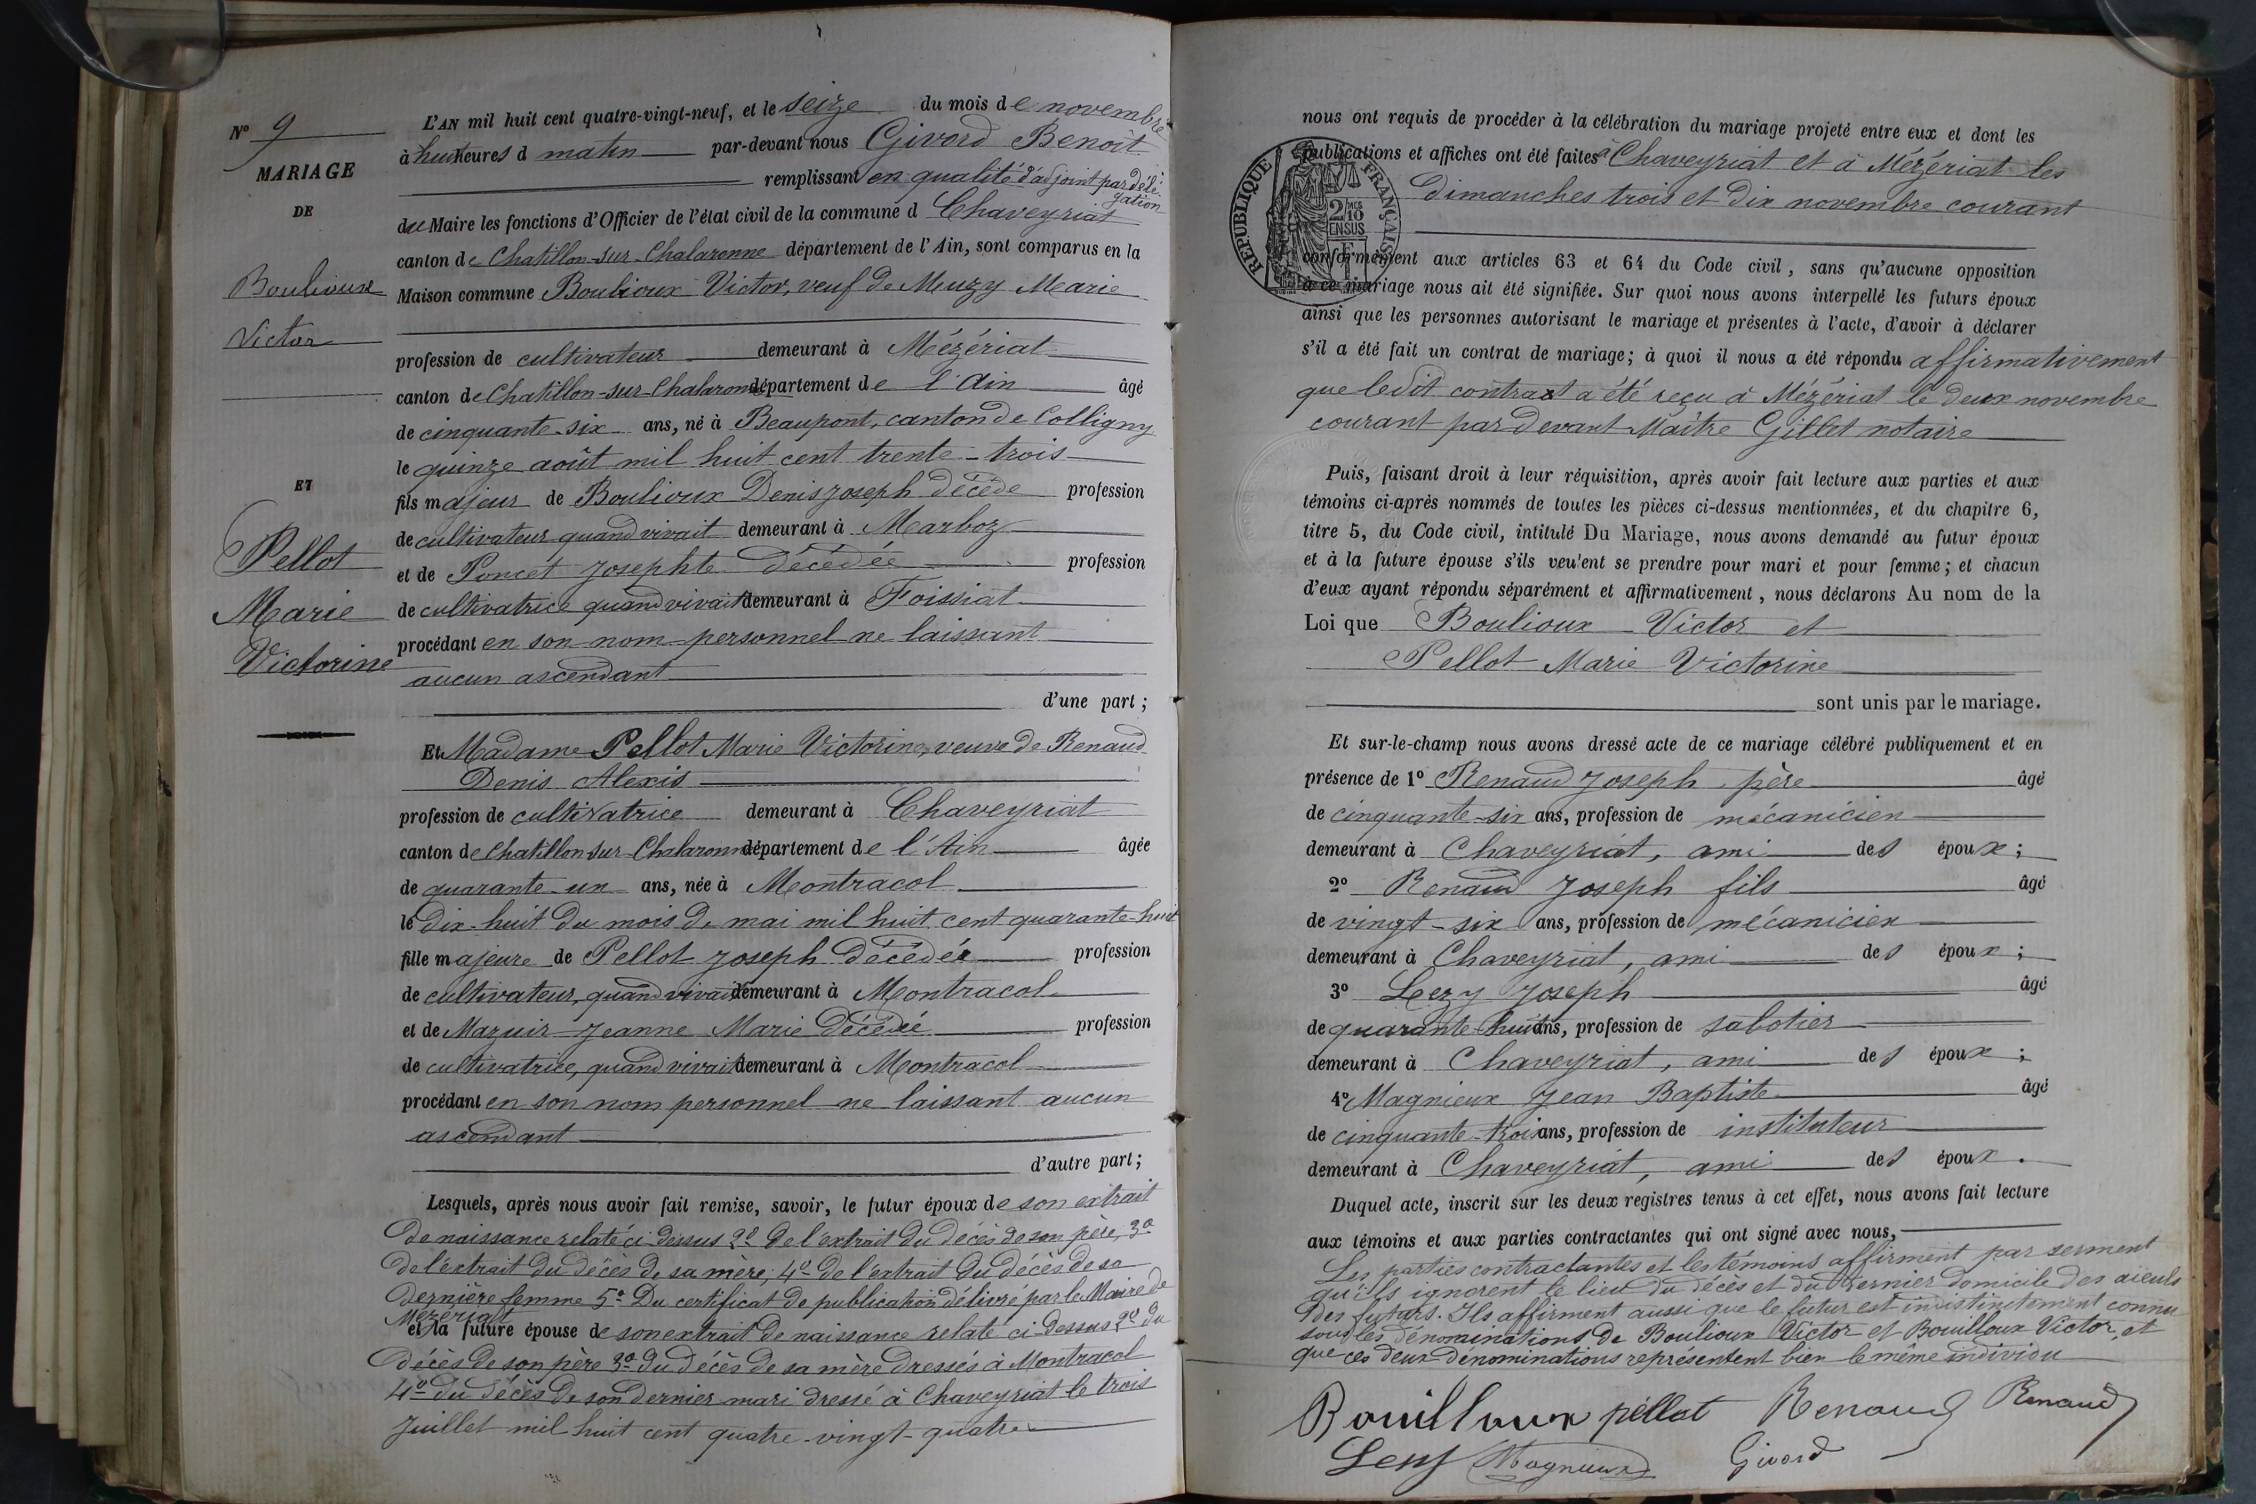 N° 9
MARIAGE
DE
Boulioux
Victor
ET
Pellot
Marie
Victorine
L'AN mil huit cent quatre-vingt-neuf, et le seize du mois de novembre
à huit heures d matin par-devant nous Givord Benoît
remplissant en qualité d'adjoint par délé-
gation
du Maire les fonctions d'Officier de l'état civil de la commune d Chaveyriat
canton de Chatillon-sur-Chalaronne département de l'Ain, sont comparus en la
Maison commune Boulioux Victor, veuf de Muzy Marie
profession de cultivateur demeurant à Mézériat
canton de Chatillon-sur-Chalaronne département de l'Ain âgé
de cinquante-six ans, né à Beaupont, canton de Colligny
le quinze août mil huit cent trente-trois
fils majeur de Boulioux Denis Joseph décédé profession
de cultivateur quand vivait demeurant à Marboz
et de Poncet Josephte décédée profession
de cultivatrice quand vivait demeurant à Foissiat
procédant en son nom personnel ne laissant
aucun ascendant
d'une part ;
Et Madame Pellot Marie Victorine, veuve de Renaud
Denis Alexis
profession de cultivatrice demeurant à Chaveyriat
canton de Chatillon sur-Chalaronne département de l'Ain âgée
de quarante-un ans, née à Montracol
le dix-huit du mois de mai mil huit cent quarante-huit
fille majeure de Pellot Joseph décédé profession
de cultivateur, quand vivait demeurant à Montracol
et de Mazuir Jeanne Marie décédée profession
de cultivatrice, quand vivait demeurant à Montracol
procédant en son nom personnel ne laissant aucun
ascendant
d'autre part ;
Lesquels, après nous avoir fait remise, savoir, le futur époux de son extrait
de naissance relaté ci-dessus 2° de l'extrait du décès de son père, 3°
de l'extrait du décès de sa mère, 4° de l'extrait du décès de sa
dernière femme 5° Du certificat de publication délivré par le Maire de
Mézériat
et la future épouse de son extrait de naissance relaté ci-dessus 2° du
décès de son père 3° du décès de sa mère dressés à Montracol
4° du décès de son dernier mari dressé à Chaveyriat le trois
Juillet mil huit cent quatre-vingt-quatre
nous ont requis de procéder à la célébration du mariage projeté entre eux et dont les
publications et affiches ont été faites à Chaveyriat et à Mézériat les
dimanches trois et dix novembre courant
REPUBLIQUE FRANÇAISE
2/10
EN SUS
conformément aux articles 63 et 64 du Code civil, sans qu'aucune opposition
à ce mariage nous ait été signifiée. Sur quoi nous avons interpellé les futurs époux
ainsi que les personnes autorisant le mariage et présentes à l'acte, d'avoir à déclarer
s'il a été fait un contrat de mariage ; à quoi il nous a été répondu affirmativement
que ledit contrat a été reçu à Mézériat le deux novembre
courant par devant Maître Gillet notaire
Puis, faisant droit à leur réquisition, après avoir fait lecture aux parties et aux
témoins ci-après nommés de toutes les pièces ci-dessus mentionnées, et du chapitre 6,
titre 5, du Code civil, intitulé Du Mariage, nous avons demandé au futur époux
et à la future épouse s'ils veulent se prendre pour mari et pour femme ; et chacun
d'eux ayant répondu séparément et affirmativement, nous déclarons Au nom de la
Loi que Boulioux Victor et
Pellot Marie Victorine
sont unis par le mariage.
Et sur-le-champ nous avons dressé acte de ce mariage célébré publiquement et en
présence de 1° Renaud Joseph, père âgé
de cinquante-six ans, profession de mécanicien
demeurant à Chaveyriat, ami des époux ;
2° Renaud Joseph fils âgé
de vingt-six ans, profession de mécanicien
demeurant à Chaveyriat, ami des époux ;
3° Joseph âgé
de quarante-huit ans, profession de sabotier
demeurant à Chaveyriat, ami des époux ;
4° Magnieux Jean Baptiste âgé
de cinquante-trois ans, profession de instituteur
demeurant à Chaveyriat, ami des époux.
Duquel acte, inscrit sur les deux registres tenus à cet effet, nous avons fait lecture
aux témoins et aux parties contractantes qui ont signé avec nous,
Les parties contractantes et les témoins affirment par serment
qu'ils ignorent le lieu du décès et du dernier domicile des aïeuls
des futurs. Ils affirment aussi que le futur est indistinctement connu
sous les dénominations de Boulioux Victor et Bouilloux Victor, et
que ces deux dénominations représentent bien le même individu
Bouilloux pellot Renaud Renaud
Magnieux Givord